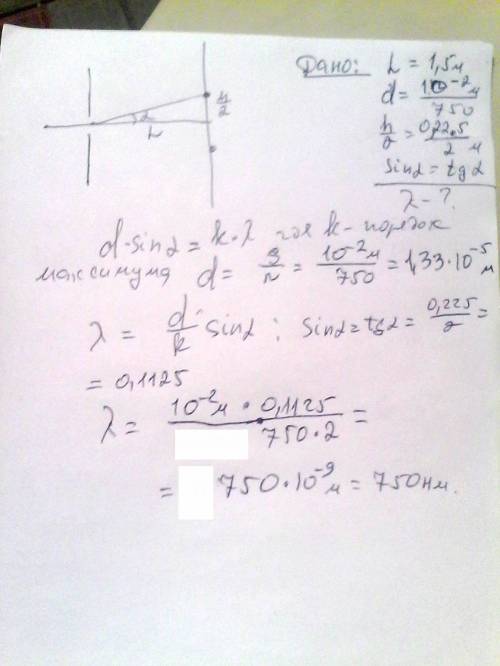 Дано: L = 1,5м
d = 10⁻²м / 750
h/2 = 0,22.5 / 2 м
sinα = tgα
λ - ?
h/2
α
L
d·sinα = k·λ где k - порядок
максимума d = / = 10⁻²м / 750 = 1,33·10⁻⁵ м
λ = d/k · sinα ; sinα = tgα = 0,225 / 2 =
= 0,1125
λ = 10⁻²м · 0,1125 / 750·2 =
= 750·10⁻⁹ м = 750 нм.